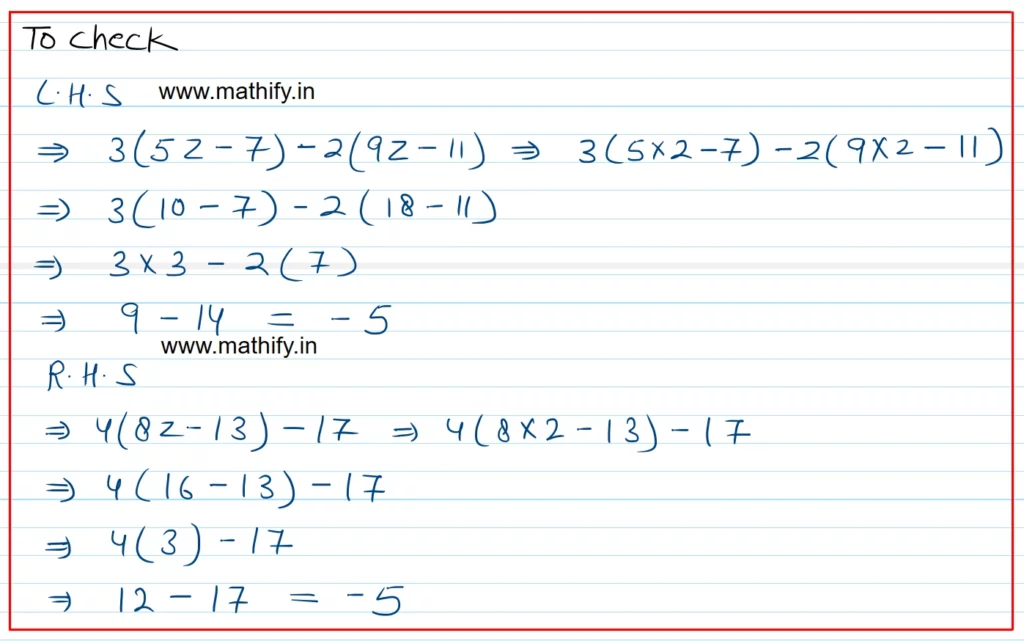 To check
L.H.S www.mathify.in
⇒ 3(5z-7)-2(9z-11) ⇒ 3(5×2-7)-2(9×2-11)
⇒ 3(10-7)-2(18-11)
⇒ 3×3-2(7)
⇒ 9-14 = -5
www.mathify.in
R.H.S
⇒ 4(8z-13)-17 ⇒ 4(8×2-13)-17
⇒ 4(16-13)-17
⇒ 4(3)-17
⇒ 12-17 = -5